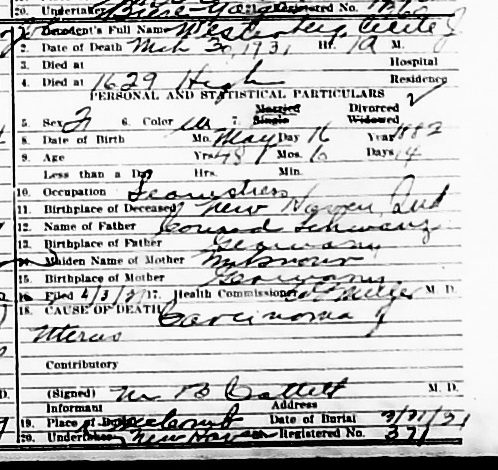 20. Undertaker Registered No.
1. Decedent's Full Name Westerberg, Cecile J
2. Date of Death Mch 30, 1931 Hr. 10 M.
3. Died at Hospital
4. Died at 1629 High Residence
PERSONAL AND STATISTICAL PARTICULARS
Married Divorced ✓
5. Sex F 6. Color W 7. Single Widowed
8. Date of Birth Mo. May Day 16 Year 1882
9. Age Yrs. 48 Mos. Days 14
Less than a Day Hrs. Min.
10. Occupation Seamstress
11. Birthplace of Deceased New Haven Ind
12. Name of Father Conrad Schwarz
13. Birthplace of Father Germany
14. Maiden Name of Mother Unknown
15. Birthplace of Mother Germany
16. Filed 4/3/31 17. Health Commissioner Miller M. D.
18. CAUSE OF DEATH Carcinoma of
Uterus
Contributory
(Signed) M. D.
Informant Address
19. Place of Burial Date of Burial 3/31/31
20. Undertaker New Haven Registered No. 371